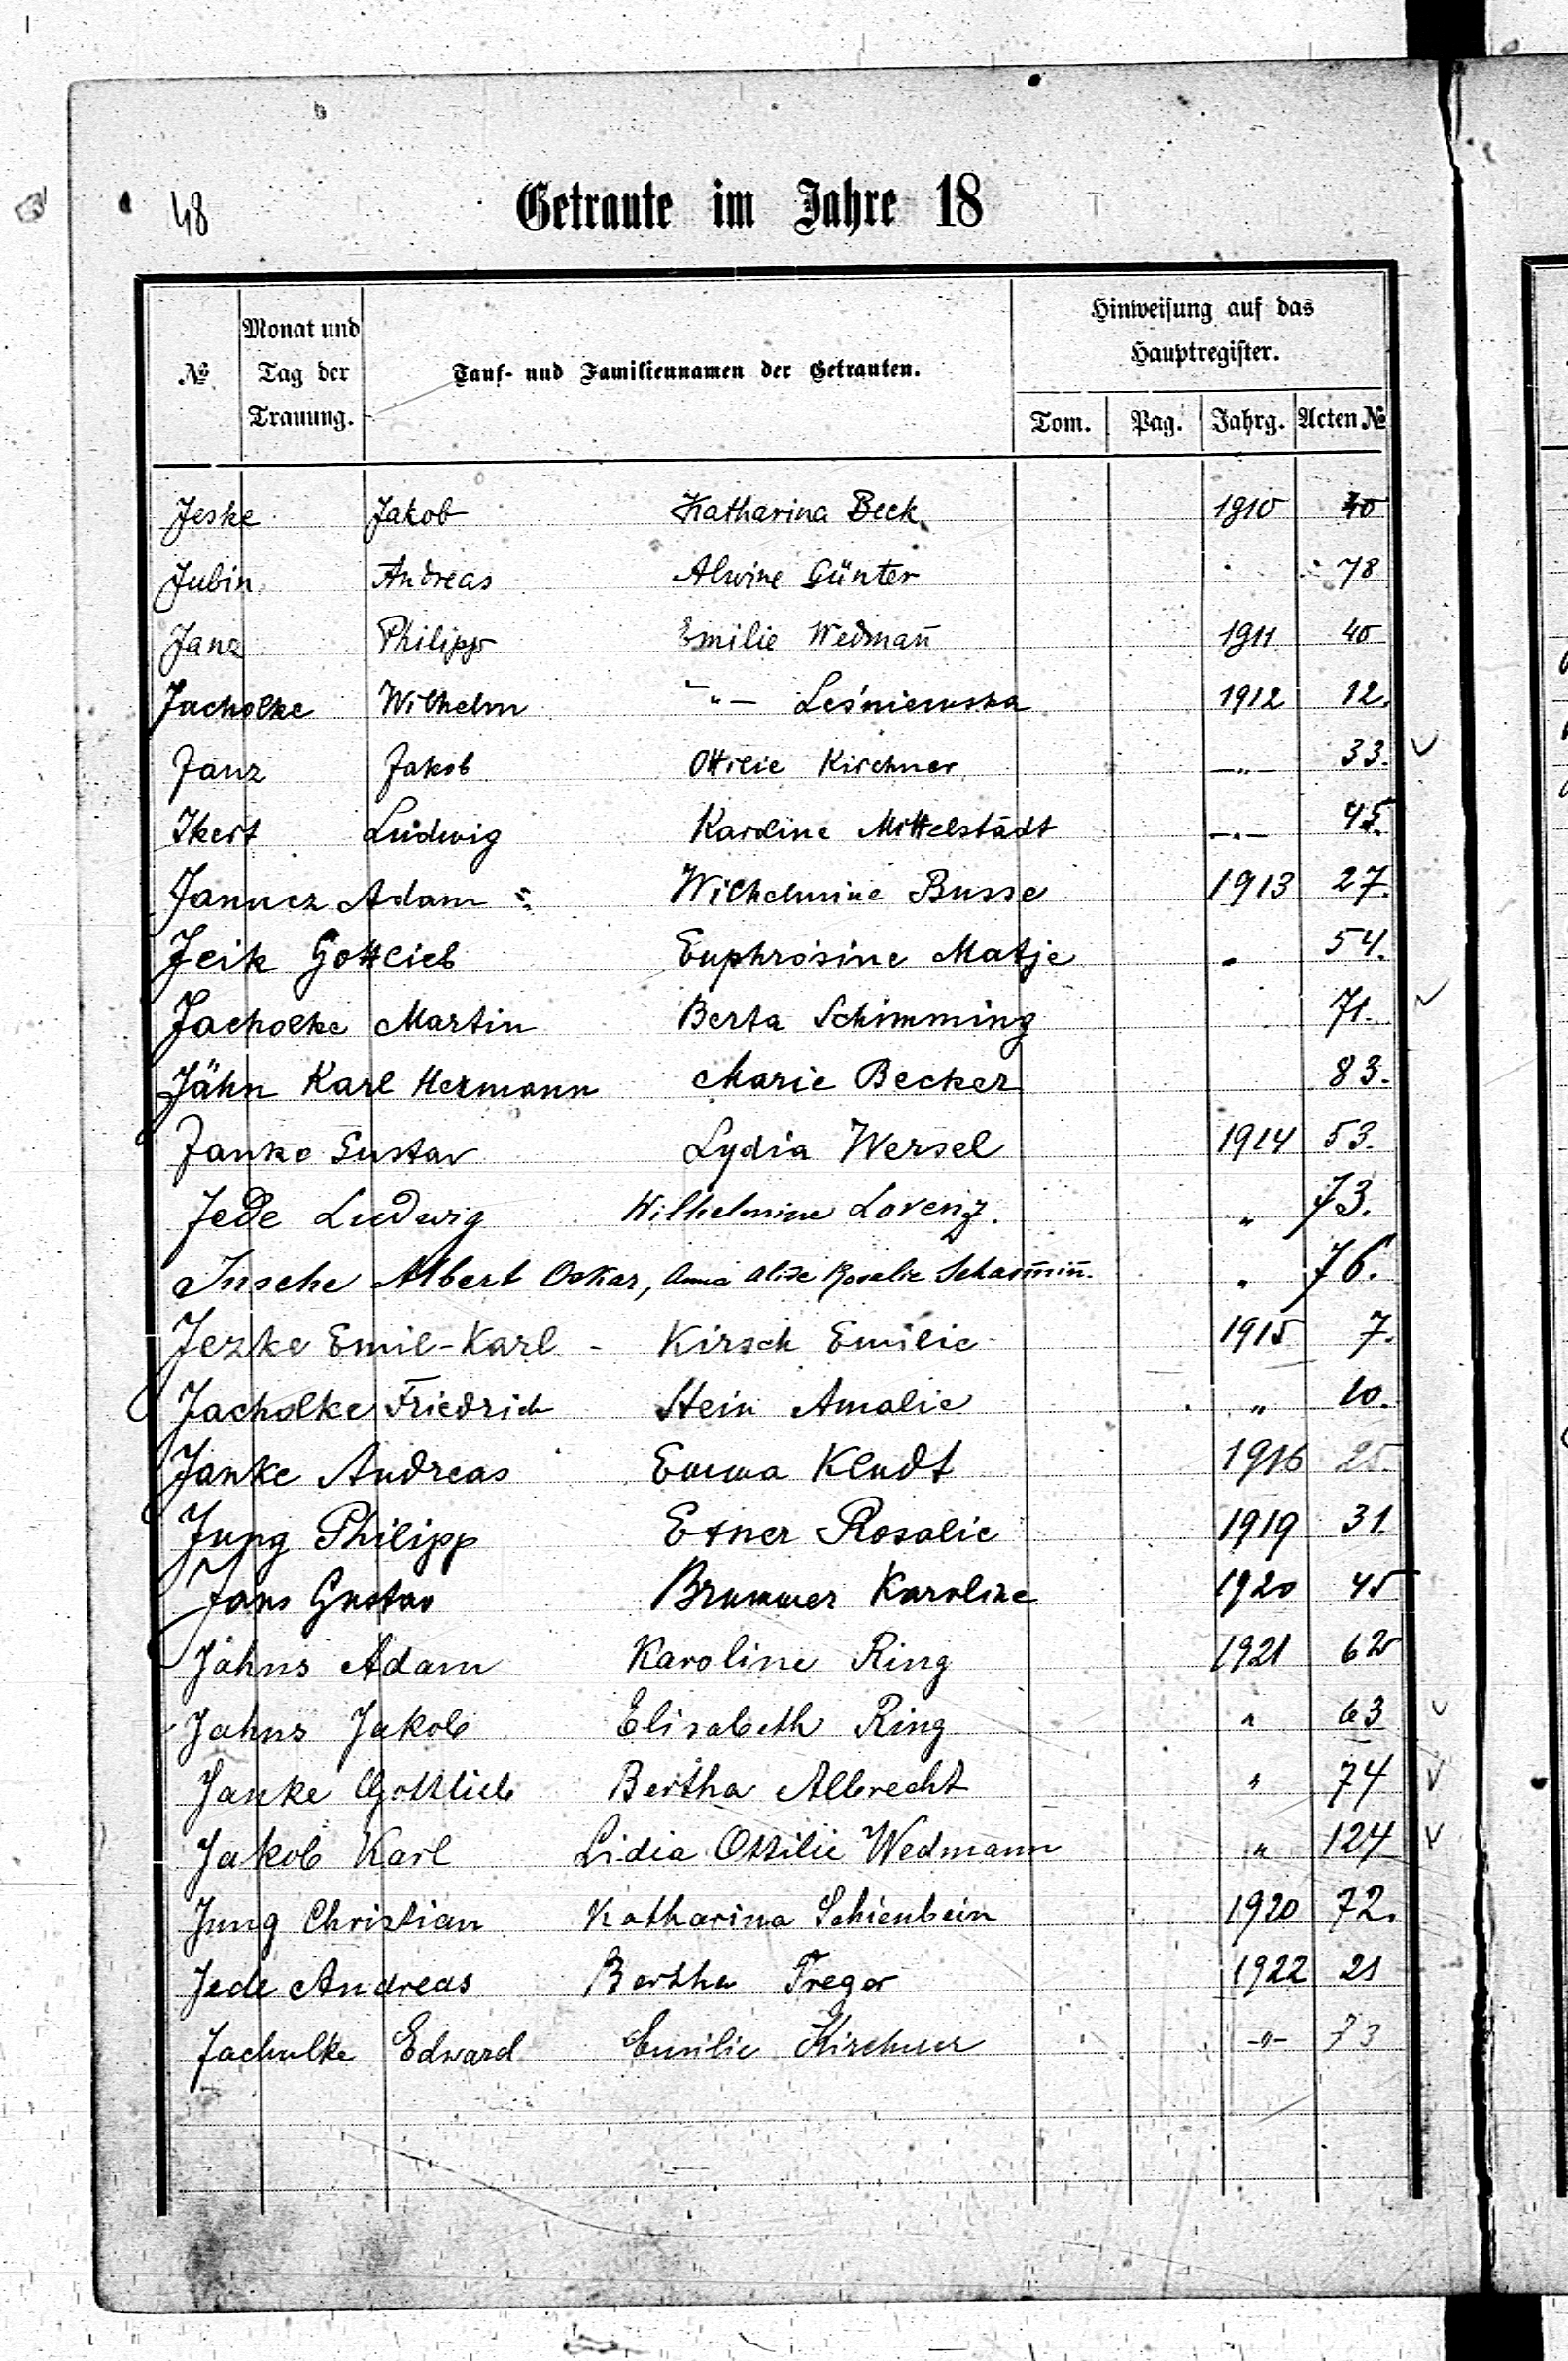 48
Getraute im Jahre 18
№ Monat und Tag der Trauung. Tauf- und Familiennamen der Getrauten. Hinweisung auf das Hauptregister.
Tom. Pag. Jahrg. Acten №
Jeske Jakob Katharina Beck 1910
Jubin Andreas Alwine Günter 78
Janz Philipp Emilie Wedmañ 1911 40
Jacholke Wilhelm -"- Leśniewska 1912 12.
Janz Jakob Ottilie Kirchner -"- 33.
Ikert Ludwig Karoline Mittelstädt -"- 45.
Janucz Adam Wilhelmine Busse 1913 27.
Jeik Gottlieb Euphrosine Matje " 54.
Jacholke Martin Berta Schimming 71.
Jähn Karl Hermann Marie Becker 83.
Janke Gustav Lydia Wersel 1914 53.
Jede Ludwig Wilhelmine Lorenz. " 73.
Albert Oskar, Anna Alide Rosalie " 76.
Jezke Emil-Karl - Kirsch Emilie 1915 7.
Jacholke Friedrich Stein Amalie " 10.
Janke Andreas Emma Klndt 1916 25.
Jung Philipp Exner Rosalie 1919 31.
Jans Gustav Brummer Karoline 1920 45
Jahns Adam Karoline Ring 1921 62
Jahns Jakob Elisabeth Ring " 63
Janke Gottlieb Bertha Albrecht " 74
Jakob Karl Lidia Ottilie Wedmann " 124
Jung Christian Katharina Schienbein 1920 72.
Jede Andreas Bertha Treger 1922 21
Jachulke Edward Emilie Kirchner -"- 73